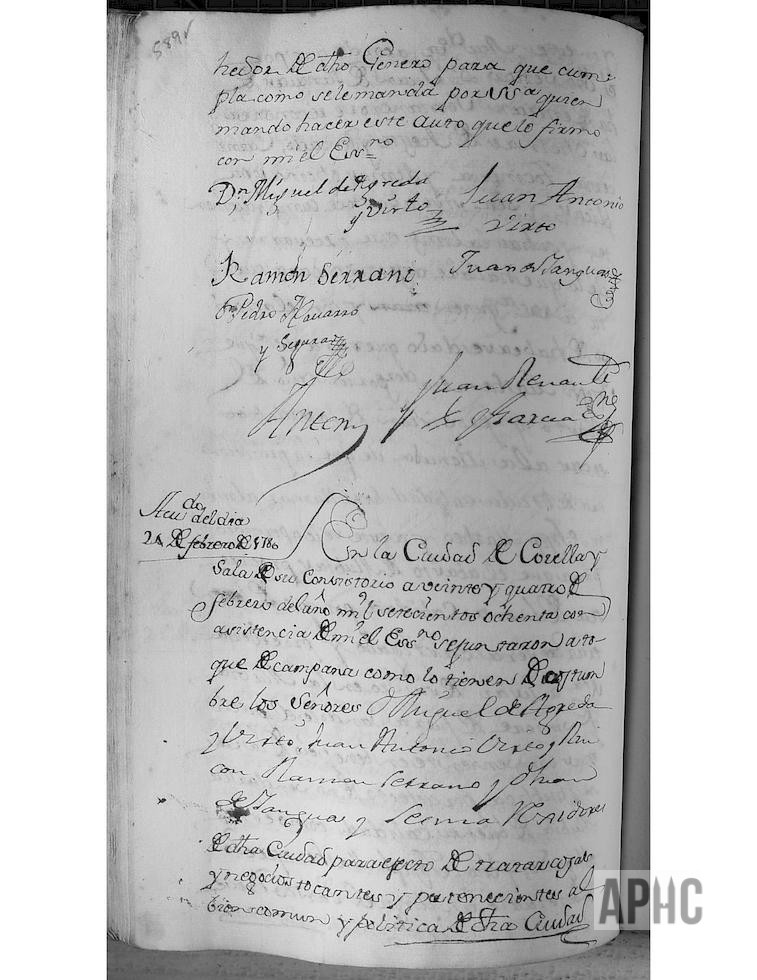 589v
hedor de dho Genero para que cum=
pla como sele manda por SSa quien
mando hacer este auto que lo firmo
con mi el Essno
Dn Miguel de Agreda
y Virto
Juan Antonio
Virto
Ramon Serrano
Juan de Sanguas
Pedro Navarro
y Segura
Antemi
Juan Renault
y Garcia
Acudo del dia
24 de febrero de 1780
En la Ciudad de Corella y
Sala de su Consistorio a veinte y quatro de
febrero del año mil setecientos ochenta con
asistencia de mi el Essno se juntaron a to-
que de campana como lo tienen de costum
bre los Señores Dn Miguel de Agreda
y Virto, Juan Antonio Virto y
con Ramon Serrano y Juan
de Sangua y Regidores
de dha Ciudad para efecto de tratar cosas
y negocios tocantes y pertenecientes al
bien comun y politica de dha Ciudad
APHC